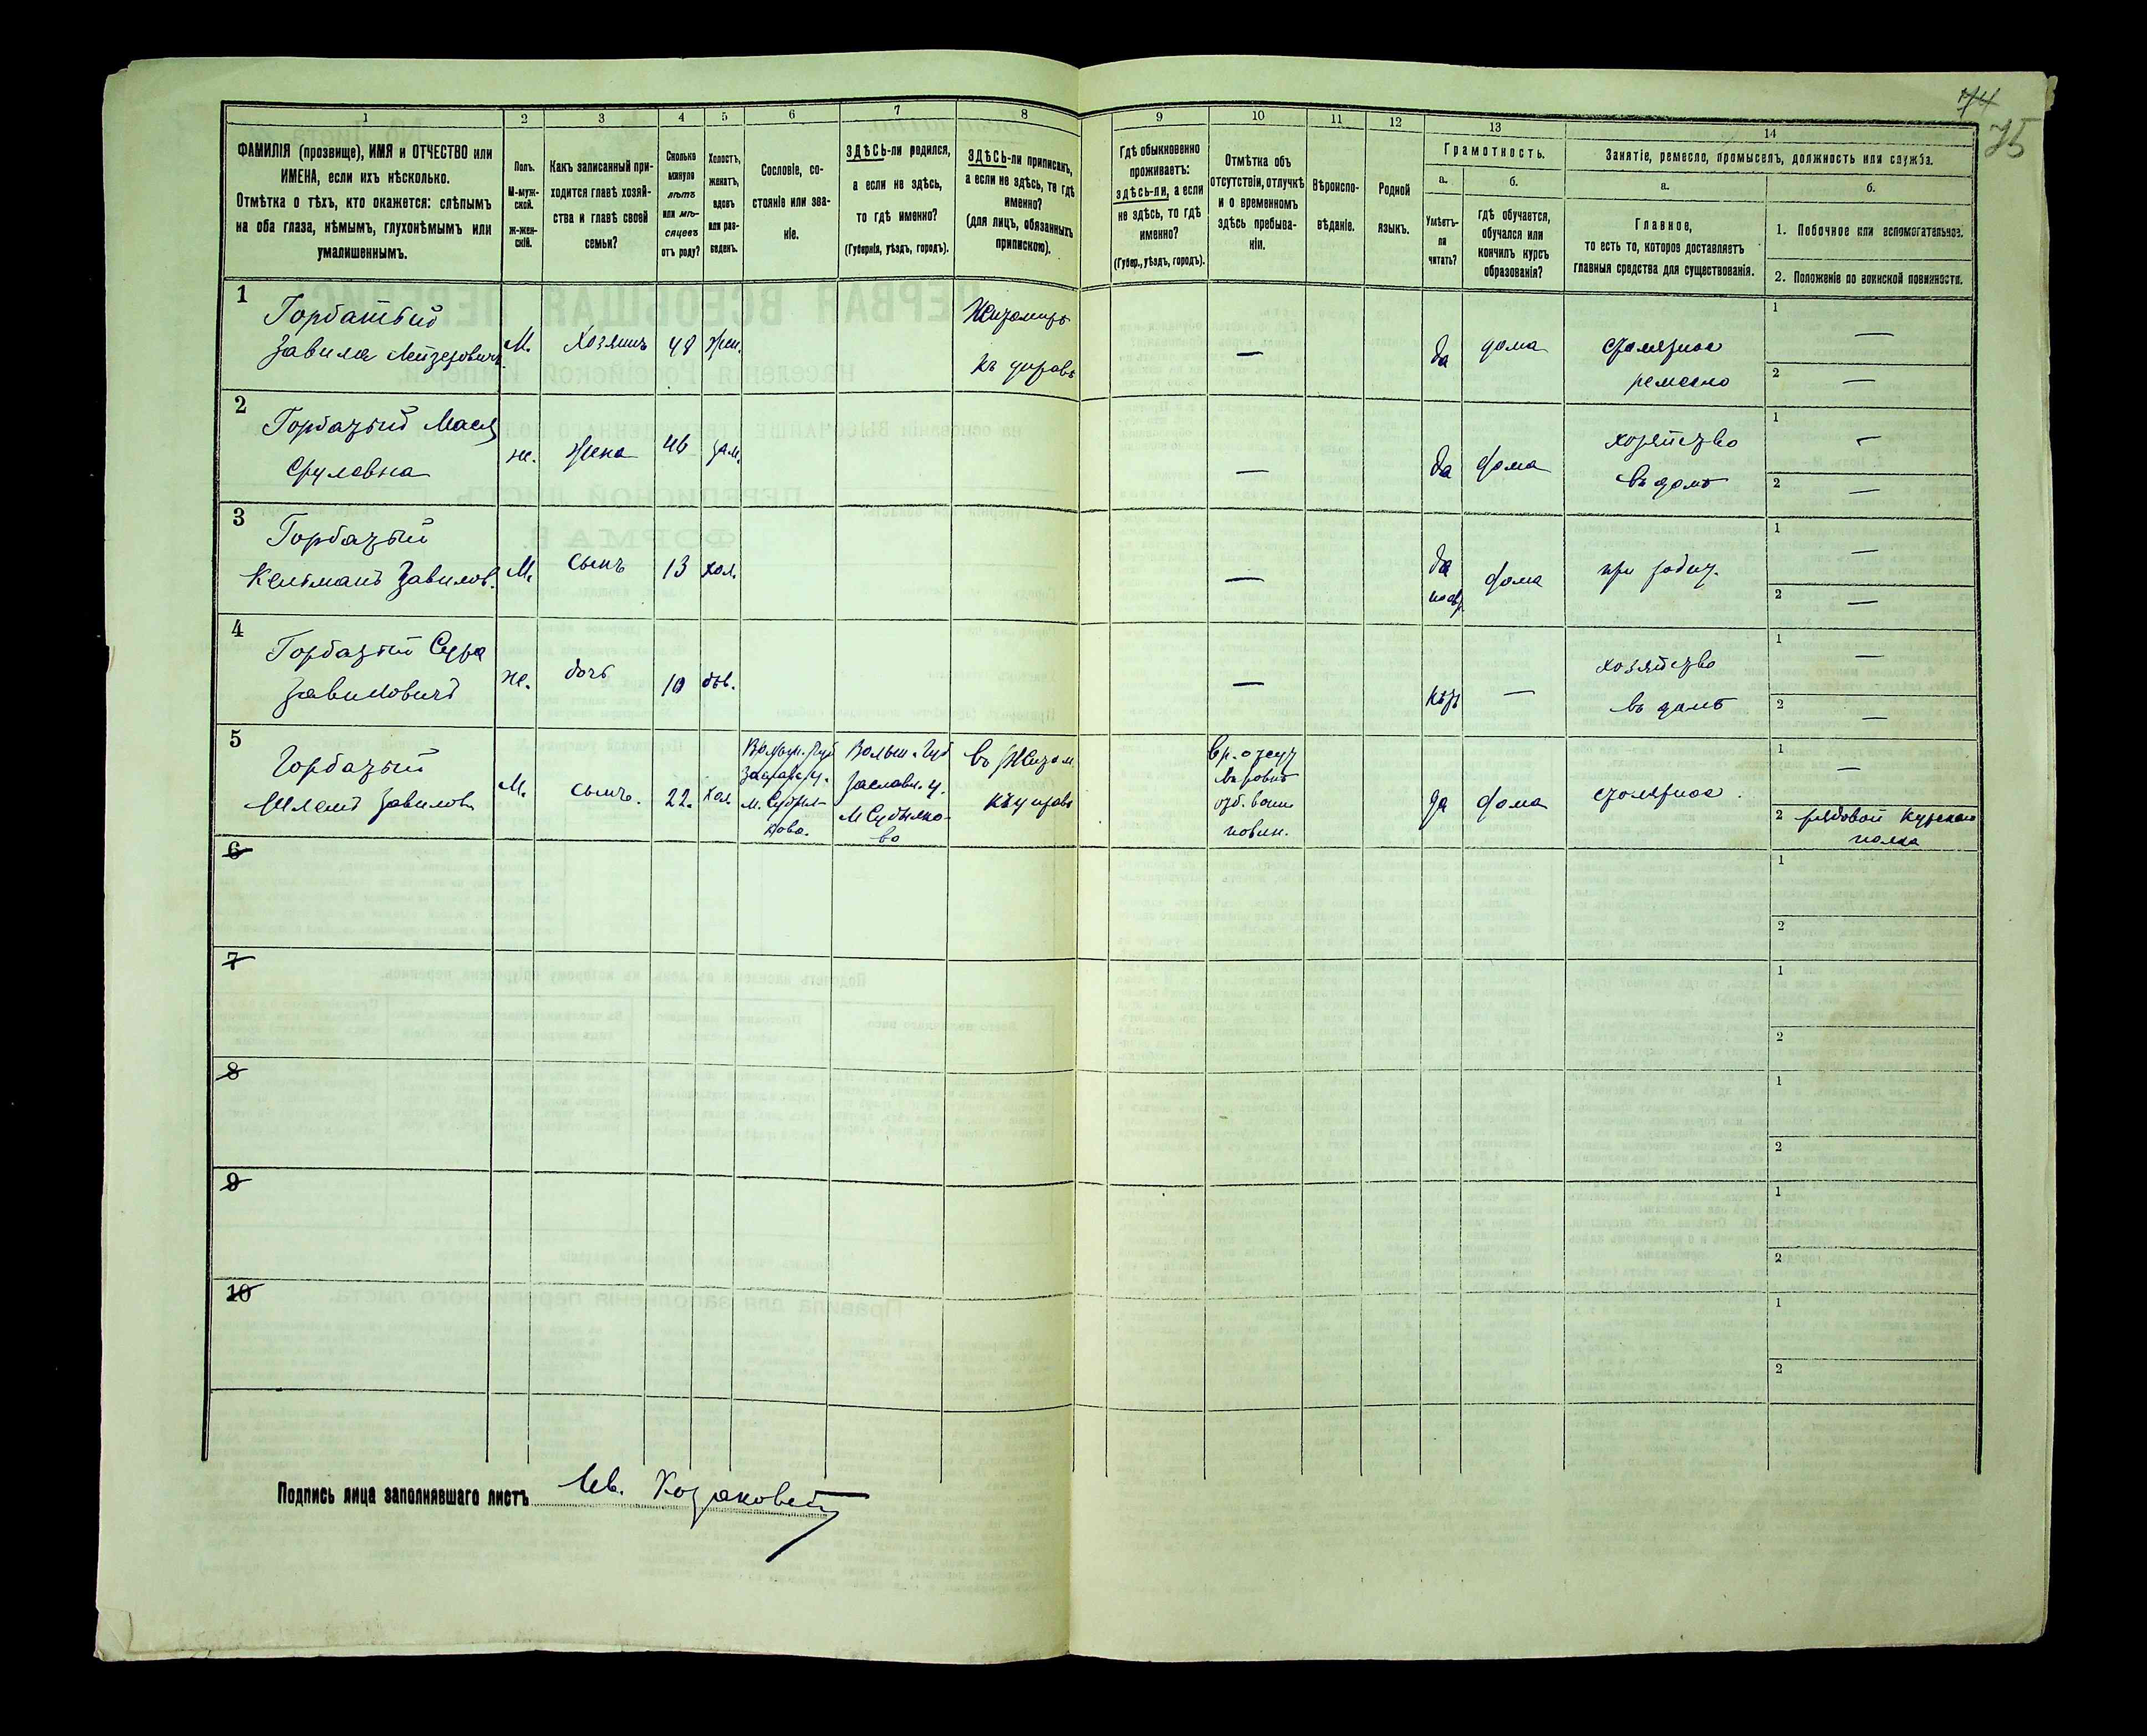 74
75
1
2
3
4
5
6
7
8
9
10
11
12
13
14
ФАМИЛІЯ (прозвище), ИМЯ и ОТЧЕСТВО или
ИМЕНА, если ихъ нѣсколько.
Отмѣтка о тѣхъ, кто окажется: слѣпымъ
на оба глаза, нѣмымъ, глухонѣмымъ или
умалишеннымъ.
Полъ.
М-муж-
ской.
Ж-жен-
скій.
Какъ записанный при-
ходится главѣ хозяй-
ства и главѣ своей
семьи?
Сколько
минуло
лѣтъ
или мѣ-
сяцевъ
отъ роду?
Холостъ,
женатъ,
вдовъ
или раз-
веденъ.
Сословіе, со-
стояніе или зва-
ніе.
ЗДѢСЬ-ли родился,
а если не здѣсь,
то гдѣ именно?
(Губернія, уѣздъ, городъ).
ЗДѢСЬ-ли приписанъ,
а если не здѣсь, то гдѣ
именно?
(для лицъ, обязанныхъ
припискою).
Гдѣ обыкновенно
проживаетъ:
здѣсь-ли, а если
не здѣсь, то гдѣ
именно?
(Губер., уѣздъ, городъ).
Отмѣтка объ
отсутствіи, отлучкѣ
и о временномъ
здѣсь пребыва-
ніи.
Вѣроиспо-
вѣданіе.
Родной
языкъ.
Грамотность.
а.
Умѣетъ-
ли
читать?
б.
гдѣ обучается,
обучался или
кончилъ курсъ
образованія?
Занятіе, ремесло, промыселъ, должность или служба.
а.
Главное,
то есть то, которое доставляетъ
главныя средства для существованія.
б.
1. Побочное или вспомогательное.
2. Положеніе по воинской повинности.
1
Горбатый
Завила Лейзеровичъ
М.
Хозяинъ
48
жен.
Житомиръ
къ управѣ
—
да
дома
столярное
ремесло
1 —
2 —
2
Горбатый Мася
Сруловна
ж.
жена
46
зам.
—
да
дома
хозяйство
въ домѣ
1 —
2 —
3
Горбатый
Кельманъ Завилов.
М.
сынъ
13
хол.
—
да
дома
при родит.
1 —
2 —
4
Горбатый Сура
Завиловичъ
ж.
дочь
10
дѣв.
—
нѣтъ
—
хозяйство
въ домѣ
1 —
2 —
5
Горбатый
Шлема Завилов.
М.
сынъ.
22.
хол.
Волын. Губ
Заслав. у.
м. Судыл-
ково.
Волын. Губ
Заславл. у.
М Судылко-
во
въ Житом.
къ управѣ
Вр. отсут
въ
отб. воин.
повин.
да
дома
столярное.
1 —
2 рядовой Курскаго
полка
6
1
2
7
1
2
8
1
2
9
1
2
10
1
2
Подпись лица заполнявшаго листъ